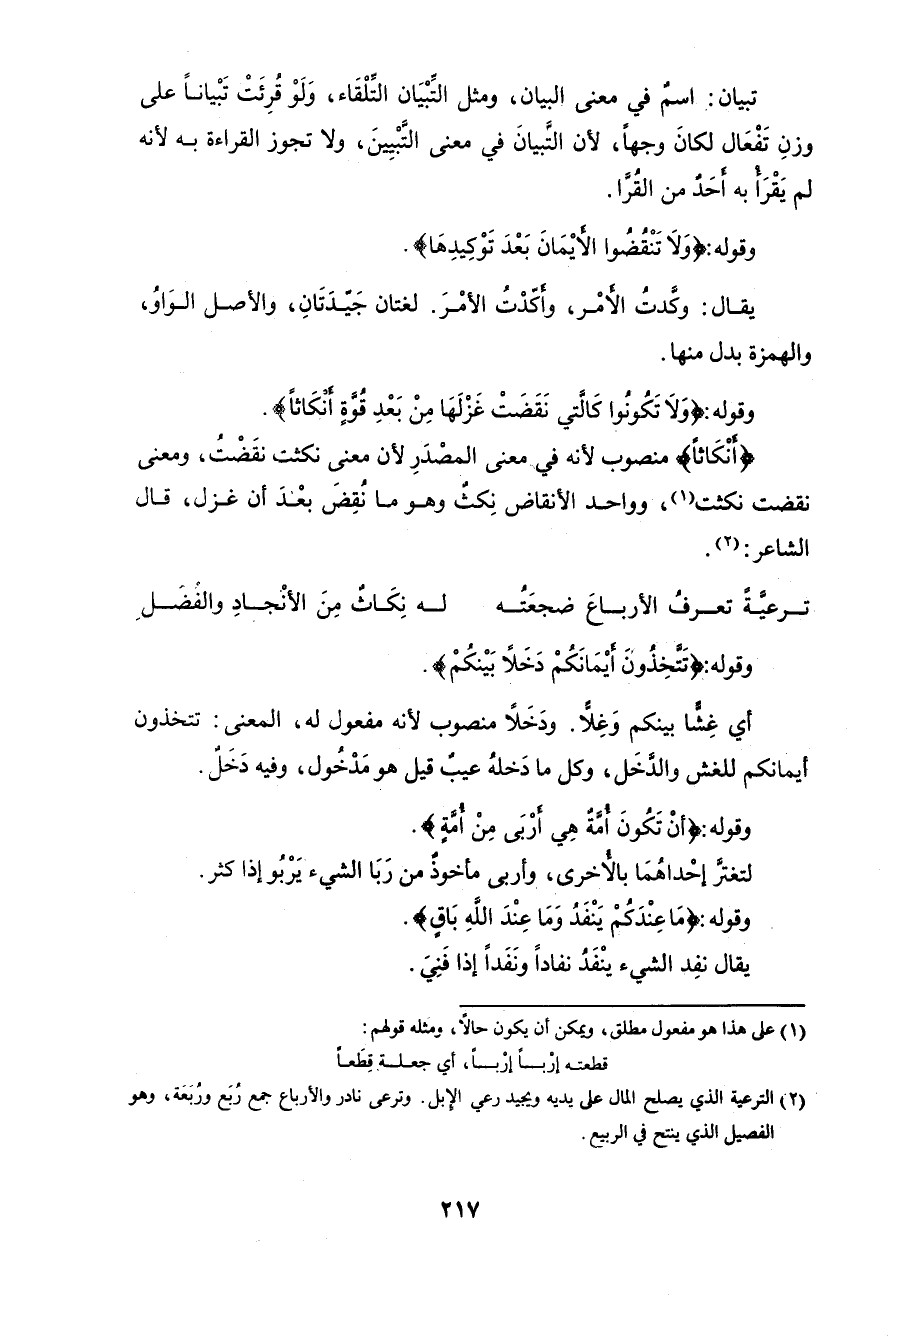 تبيان: اسمٌ في معنى البيان، ومثل التِّبْيَان التِّلْقَاء، وَلَوْ قُرِئَتْ تَبْيانـاً على
وزنِ تَفْعَال لكانَ وجهاً، لأن التَّبيانَ في معنى التَّبْيِينَ، ولا تجوز القراءة بـه لأنه
لم يَقْرَأْ به أَحَدٌ من القُرَّا.
وقوله:﴿وَلَا تَنْقُضُوا الأَيْمَانَ بَعْدَ تَوْكِيدِهَا﴾.
يقـال: وكَّدتُ الأَمْـر، وأَكّدْتُ الأمْـرَ. لغتان جَيّـدَتَانِ، والأصـل الـوَاوُ،
والهمزة بدل منها.
وقوله:﴿وَلَا تَكُونُوا كَالَّتِي نَقَضَتْ غَزْلَهَا مِنْ بَعْدِ قُوَّةٍ أَنْكَاثاً﴾.
﴿أَنْكَاثاً﴾ منصوب لأنه في معنى المصْدَرِ لأن معنى نكثت نقَضْتُ، ومعنى
نقضت نكثت(١)، وواحـد الأنقاض نِكثٌ وهـو مـا نُقِضَ بعْـدَ أن غـزل، قـال
الشاعر:(٢).
تـرعيَّـةً تعـرفُ الأربـاعَ ضجعَتُـه لـه نِكَـاثٌ مِنَ الأنْجـادِ والفُضَـلِ
وقوله:﴿تَتَّخِذُونَ أَيْمَانَكُمْ دَخَلاً بَيْنَكُمْ﴾.
أي غِشًّا بينكم وَغِلاًّ. ودَخَلاً منصوب لأنه مفعول له، المعنى: تتخذون
أيمانكم للغش والدَّخَل، وكل ما دَخلهُ عيبٌ قيل هو مَدْخُول، وفيه دَخَلٌ.
وقوله:﴿أنْ تَكُونَ أُمَّةٌ هِي أَرْبَى مِنْ أُمَّةٍ﴾.
لتغترَّ إحْداهُمَا بالأُخرى، وأربى مأخوذٌ من رَبَا الشيء يَرْبُو إذا كثر.
وقوله:﴿مَا عِنْدَكُمْ يَنْفَدُ وَمَا عِنْدَ اللَّهِ بَاقٍ﴾.
يقال نفِد الشيء ينْفَدُ نفاداً ونَفَداً إذا فَنِيَ.
(١) على هذا هو مفعول مطلق، ويمكن أن يكون حالاً، ومثله قولهم:
قطعتـه إرْبـاً إرْبـاً، أي جعلـة قِطَعـاً
(٢) الترعية الذي يصلح المال على يديه ويجيد رعي الإبل. وترعى نادر والأرباع جمع رُبَع ورُبَعَة، وهو
الفصيل الذي ينتج في الربيع.
٢١٧